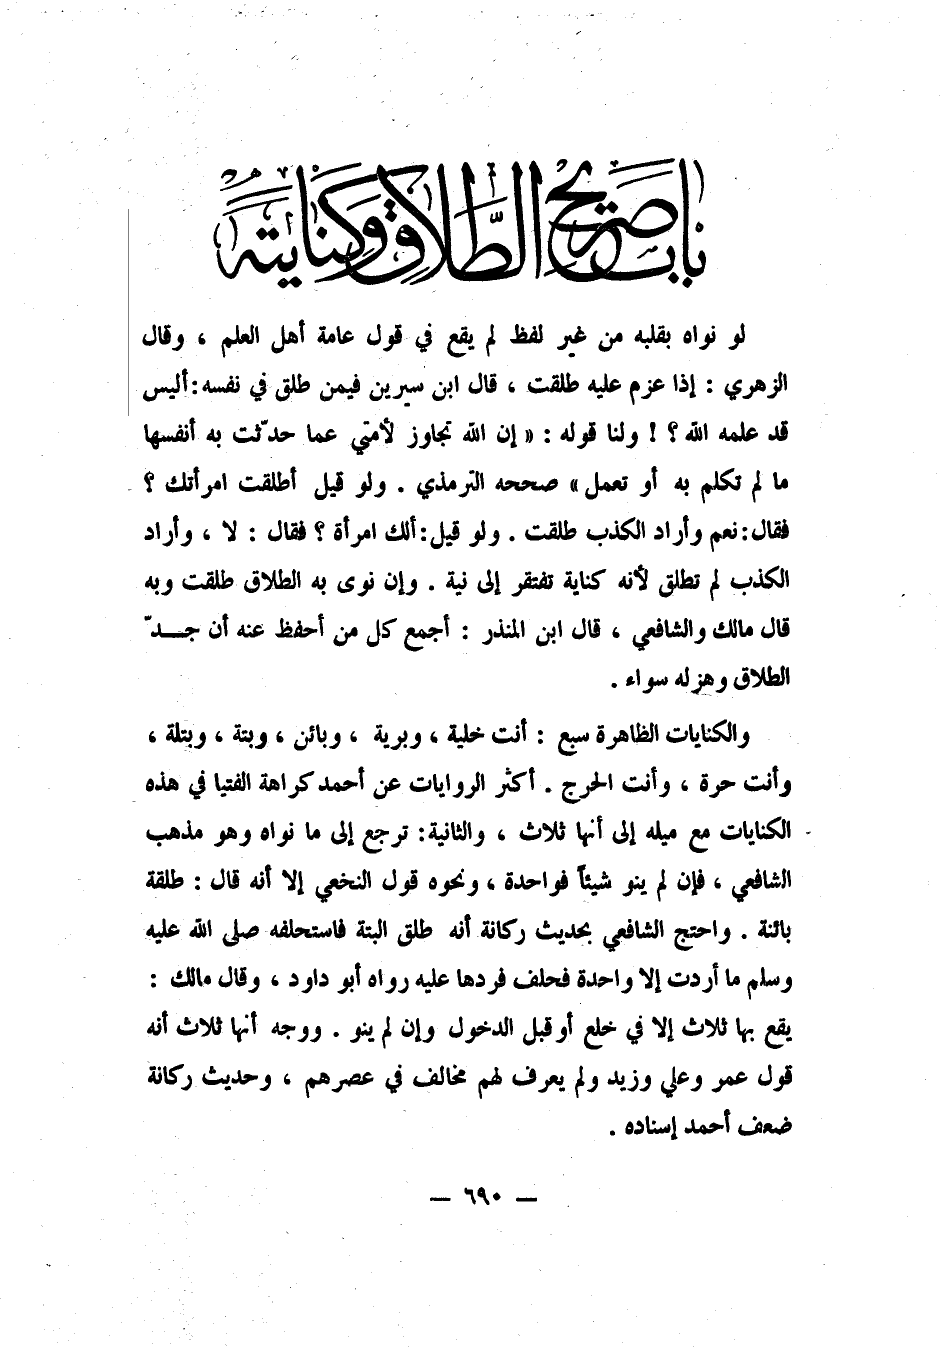 باب صريح الطلاق وكنايته
لو نواه بقلبه من غير لفظ لم يقع في قول عامة أهل العلم ، وقال
الزهري : إذا عزم عليه طلقت ، قال ابن سيرين فيمن طلق في نفسه : أليس
قد علمه الله ؟ ! ولنا قوله : « إن الله تجاوز لأمتي عما حدّثت به أنفسها
ما لم تكلم به أو تعمل » صححه الترمذي . ولو قيل أطلقت امرأتك ؟
فقال : نعم وأراد الكذب طلقت . ولو قيل : ألك امرأة ؟ فقال : لا ، وأراد
الكذب لم تطلق لأنه كناية تفتقر إلى نية . وإن نوى به الطلاق طلقت وبه
قال مالك والشافعي ، قال ابن المنذر : أجمع كل من أحفظ عنه أن جـــدّ
الطلاق وهزله سواء .
والكنايات الظاهرة سبع : أنت خلية ، وبرية ، وبائن ، وبتة ، وبتلة ،
وأنت حرة ، وأنت الحرج . أكثر الروايات عن أحمد كراهة الفتيا في هذه
الكنايات مع ميله إلى أنها ثلاث ، والثانية : ترجع إلى ما نواه وهو مذهب
الشافعي ، فإن لم ينو شيئاً فواحدة ، ونحوه قول النخعي إلا أنه قال : طلقة
بائنة . واحتج الشافعي بحديث ركانة أنه طلق البتة فاستحلفه صلى الله عليه
وسلم ما أردت إلا واحدة فحلف فردها عليه رواه أبو داود ، وقال مالك :
يقع بها ثلاث إلا في خلع أو قبل الدخول وإن لم ينو . ووجه أنها ثلاث أنه
قول عمر وعلي وزيد ولم يعرف لهم مخالف في عصرهم ، وحديث ركانة
ضعف أحمد إسناده .
— ٦٩٠ —